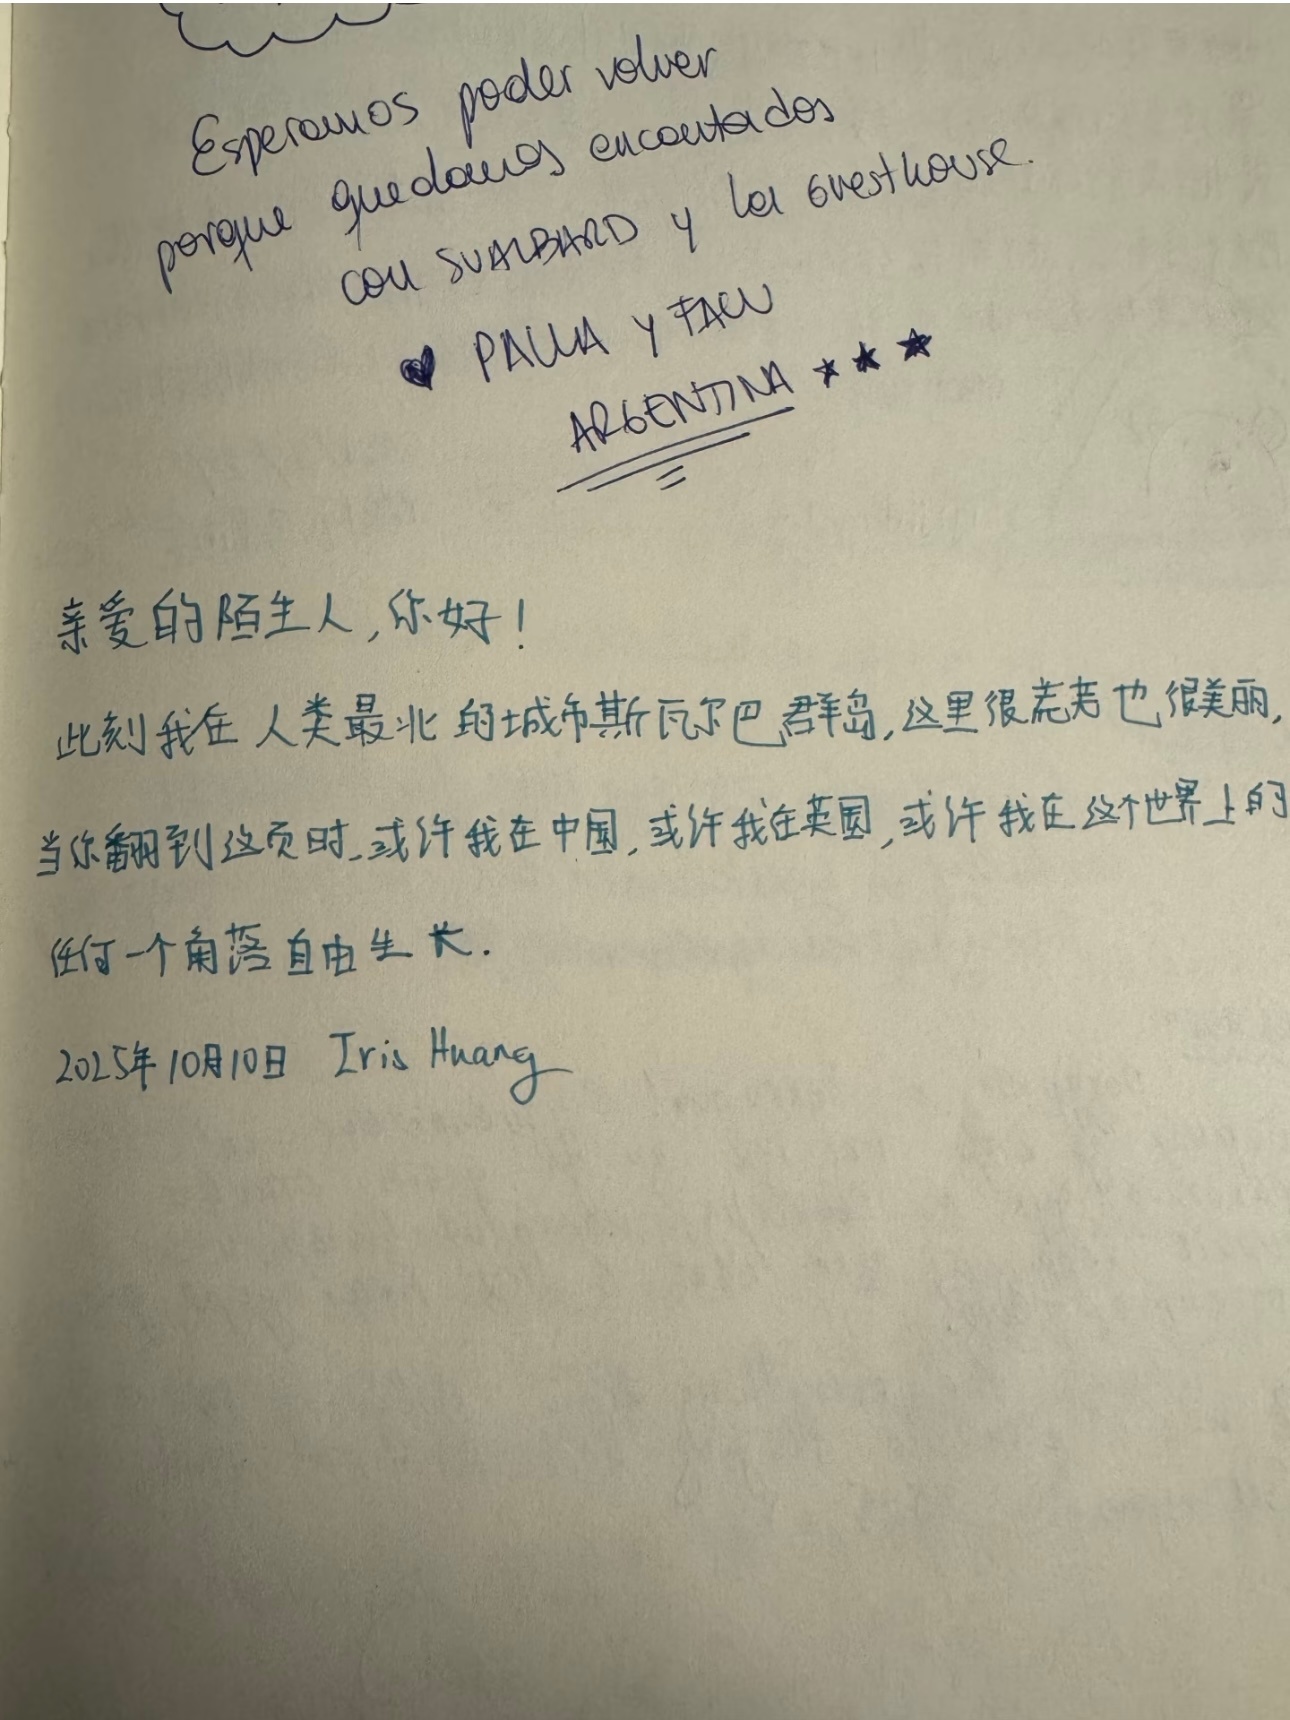 Esperamos poder volver
porque quedamos encantados
con SVALBARD y la GUESTHOUSE.
PAULA Y FACU
ARGENTINA
亲爱的陌生人,你好!
此刻我在人类最北的城市斯瓦尔巴群岛,这里很荒芜也很美丽,
当你翻到这页时、或许我在中国,或许我在英国,或许我在这个世界上的
任何一个角落自由生长.
2025年10月10日 Iris Huang